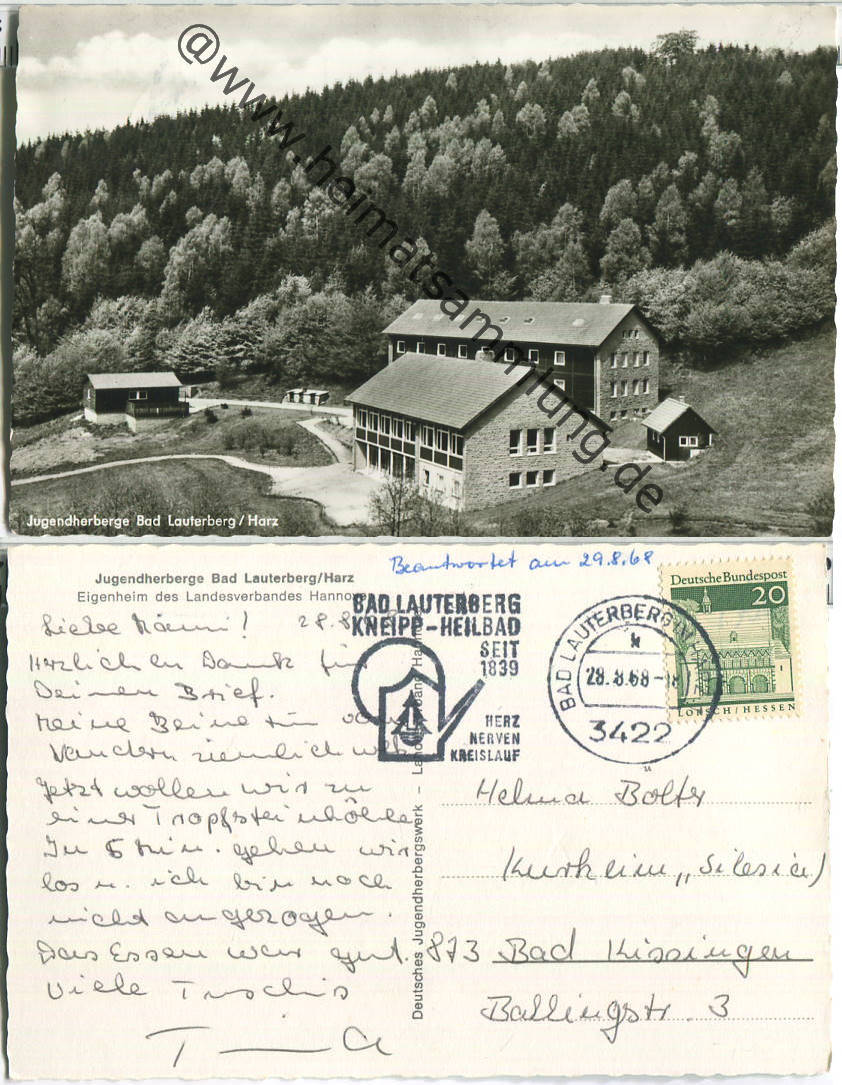 @www.heimatsammlung.de
Jugendherberge Bad Lauterberg/Harz
Jugendherberge Bad Lauterberg/Harz
Eigenheim des Landesverbandes Hannover
Beantwortet am 29.8.68
Liebe 28.8.
Herzlichen Dank für
Deinen Brief.
Meine Beine tun vom
Wandern ziemlich weh.
Jetzt wollen wir zu
einer Tropfsteinhöhle
In 5 Min. gehen wir
los u. ich bin noch
nicht angezogen.
Das Essen war gut.
Viele
Deutsches Jugendherbergswerk - Landesverband Hannover
BAD LAUTERBERG
KNEIPP-HEILBAD
SEIT
1839
HERZ
NERVEN
KREISLAUF
BAD LAUTERBERG
k
28.8.68-18
3422
Deutsche Bundespost
20
LORSCH/HESSEN
Helma Bolter
Kurheim „Silesia"
873 Bad Kissingen
Ballingstr. 3